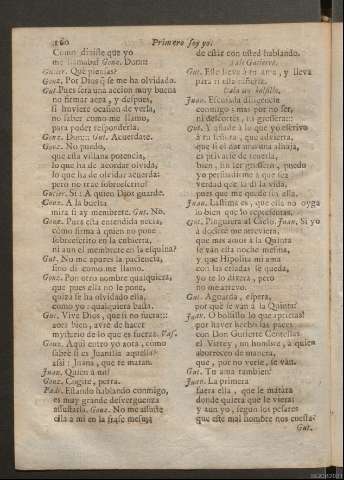 160
Primero soy yo.
Como dixiste que yo
me llamaba? Gonz. Donn:
Gutier. Què piensas?
Gonz. Por Dios q̃ se me ha olvidado.
Gut. Pues serà una accion muy buena
no firmar aora, y despues,
si huviere ocasion de verla,
no saber como me llamo,
para poder responderla.
Gonz. Don:: Gut. Acuerdate.
Gonz. No puedo,
que esta villana potencia,
lo que ha de acordar olvida,
lo que ha de olvidar acuerda:
pero no trae sobrescrito?
Gutier. Si: A quien Dios guarde.
Gonz. A la buelta
mira si ay membrete. Gut. No.
Gonz. Pues esta entendida necia,
còmo firma à quien no pone
sobrescrito en la cubierta,
ni aun el membrete en la esquina?
Gut. No me apures la paciencia,
sino di como me llamo.
Gonz. Pon otro nombre qualquiera,
que pues ella no le pone,
quizà se ha olvidado ella,
como yo: qualquiera basta.
Gut. Vive Dios, que si no fuera::
aora bien, avrè de hacer
mysterio de lo que es fuerza. Vas.
Gonz. Aqui entro yo aora, como
sabrè si es Juanilla aquella?
assi: Juana, que te matan.
Juan. Quien à mi?
Gonz. Cogite, perra.
Juan. Estando hablando conmigo,
es muy grande desverguenza
assustarla. Gonz. No me assuste
ella à mi en la frase mesma
de estàr con usted hablando.
Sale Gutierre.
Gut. Esse lleva à tu ama, y lleva
para ti esta
Dala un bolsillo.
Juan. Escusada diligencia
conmigo; mas por no ser,
ni descortès, ni grossera::
Gut. Y añade à lo que yo escrivo
à tu señora, que advierta,
que si el dar una una alhaja,
es privarle de tenerla,
bien,
yo persuadirme à que sea
verdad que la di la vida,
pues que me quedè sin ella.
Juan. Lastima es, que ella no oyga
lo bien que lo representas.
Gut. Pluguiera al Cielo. Juan. Si yo
à docirte me atreviera,
que mis amos à la Quinta
se van esta noche mesma,
y que Hipolita mi ama
con las criadas se queda,
yo te lo dixera, pero
no me atrevo.
Gut. Aguarda, espera,
por què se vàn à la Quinta?
Juan. O bolsillo lo que aprietas!
por haver hechos las paces
con Don Gutierre Centellas
el Virrey, un hombre, à quien
aborrecen de manera,
que, por no verle, se vàn.
Gut. Tu ama tambien?
Juan. La primera
fuera ella, que le matàra
donde quiera que le viera:
y aun yo, segun los pesares
que este mal hombre nos cuesta:
Gut.